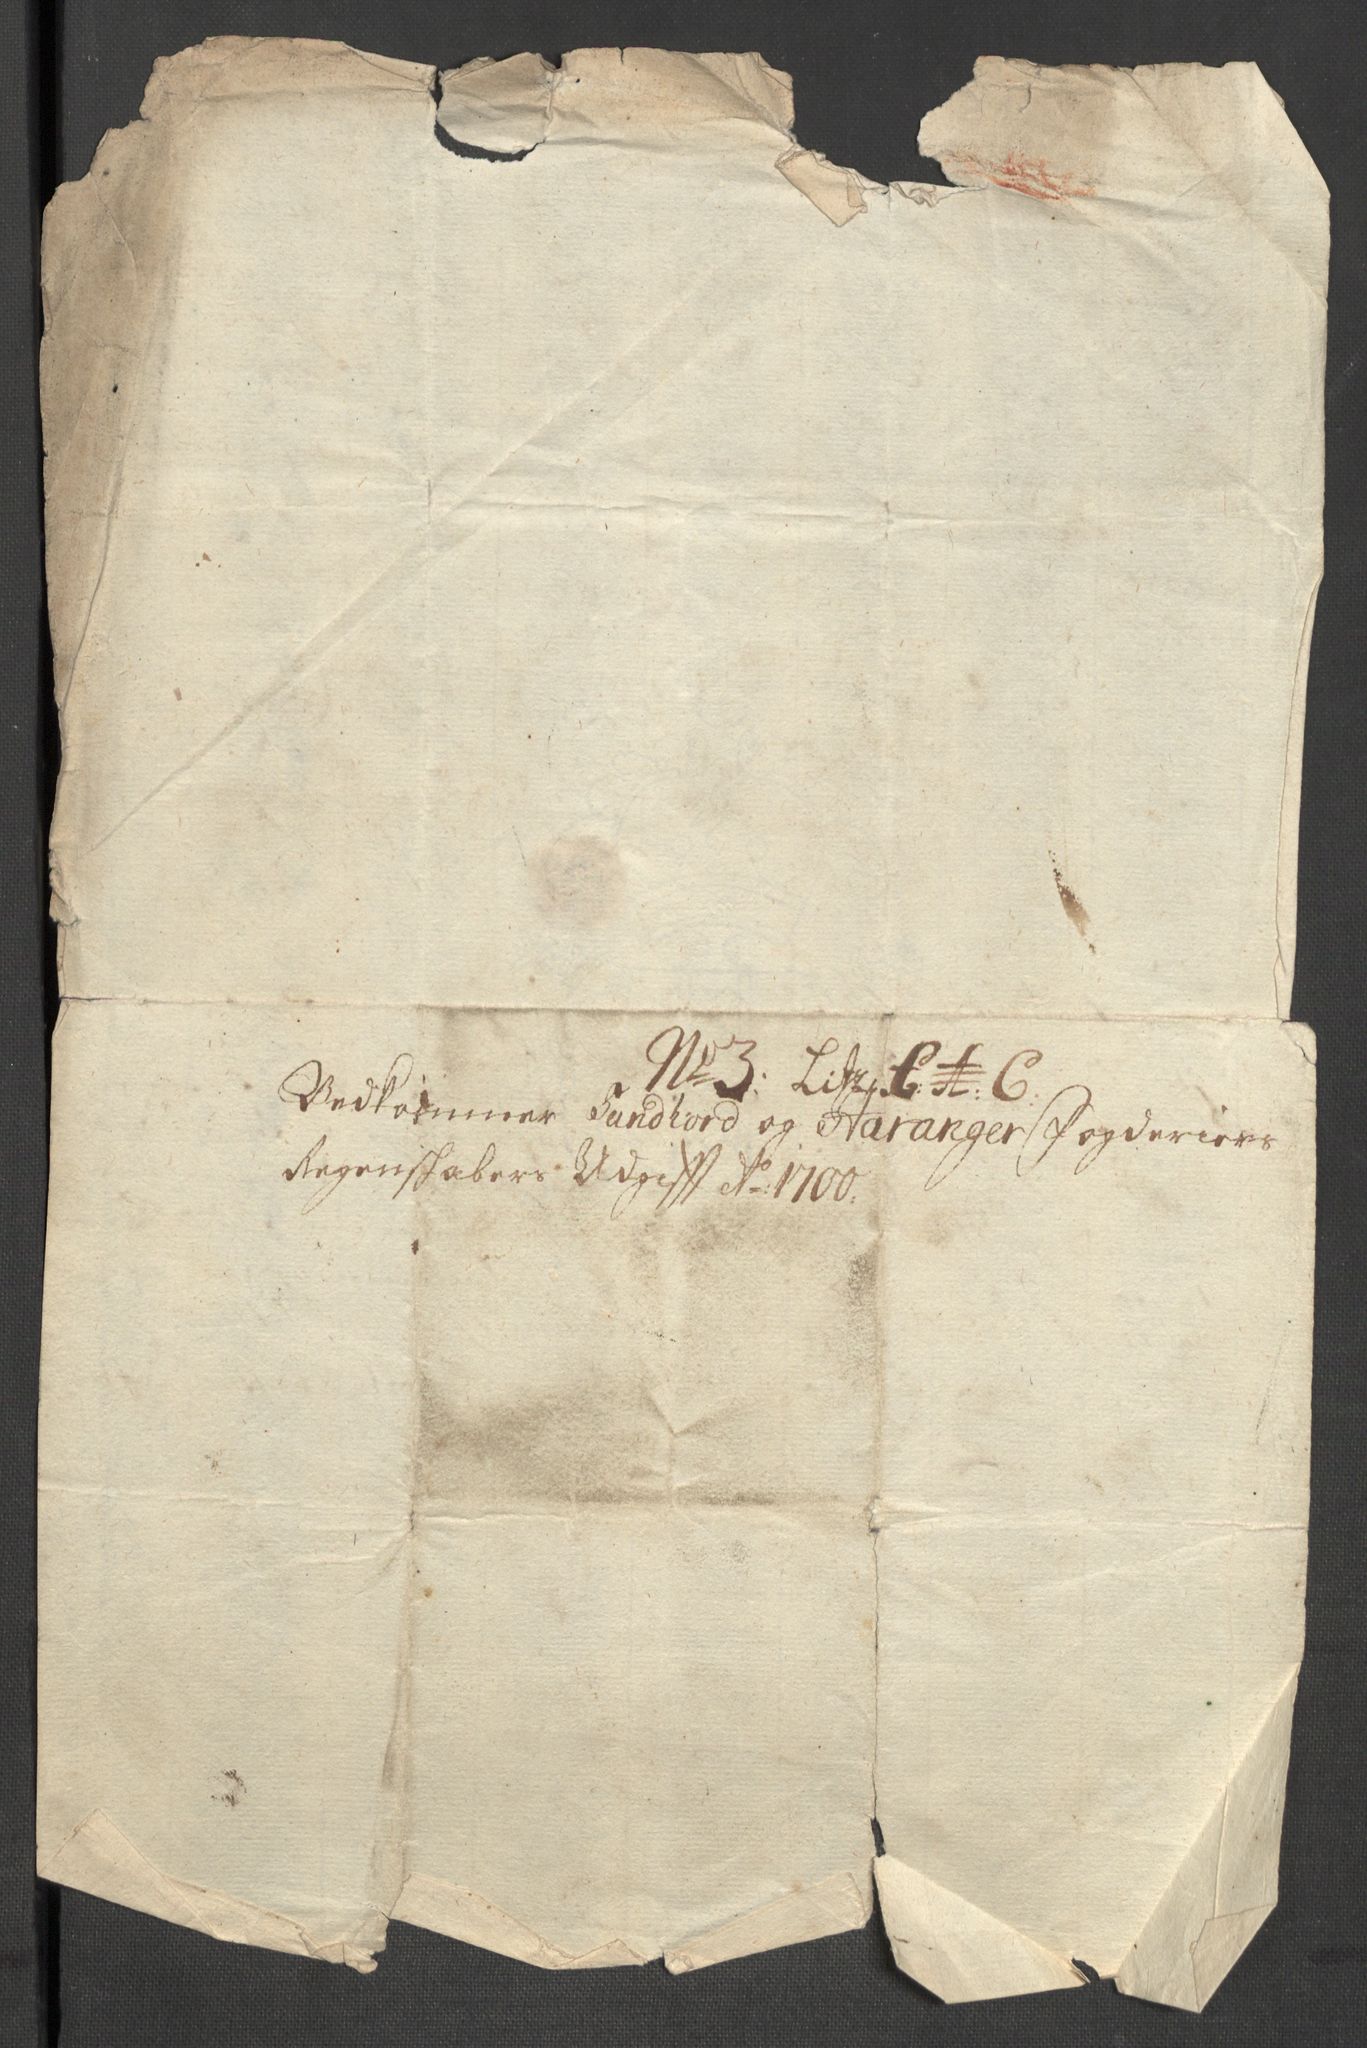 No 3: Litr: C: A: C.
Vedkommer Sundhord og Haranger Fogderiers
Regenschabers Udgifft Ao: 1700: